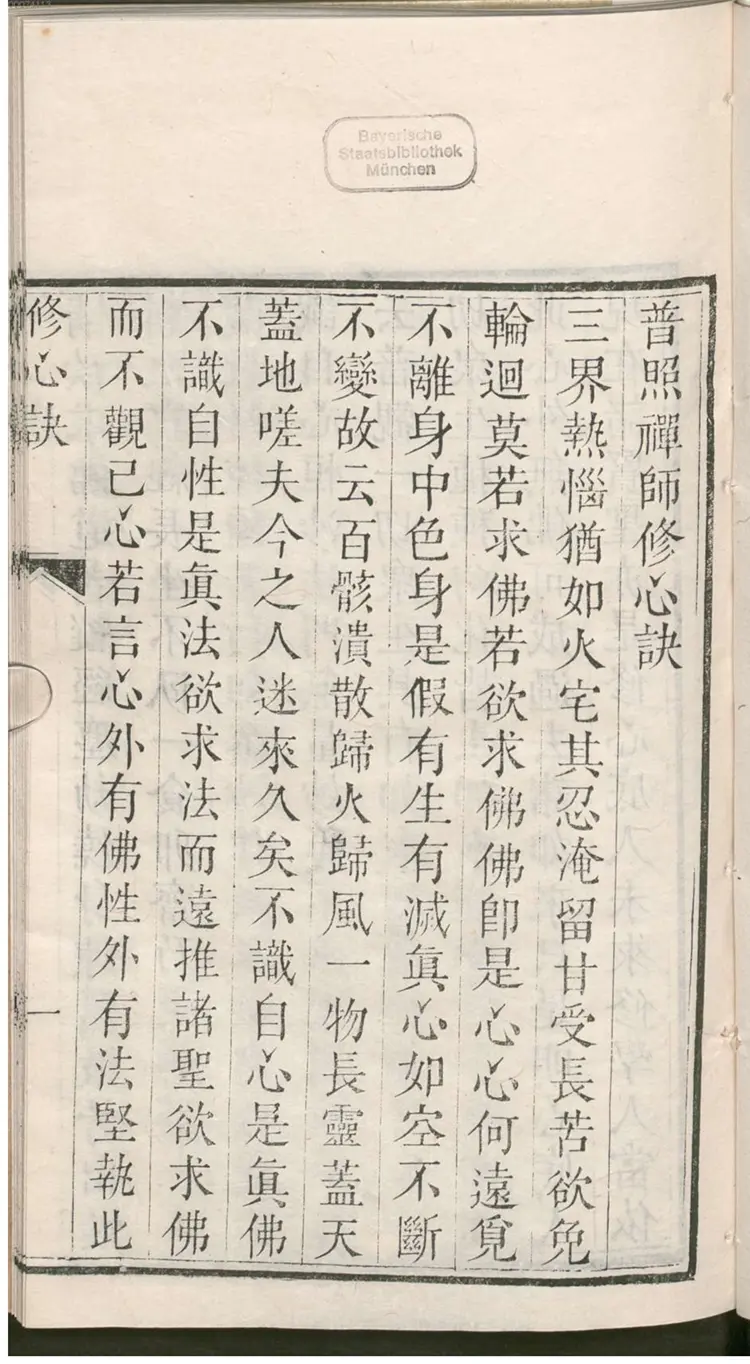 Bayerische
Staatsbibliothek
München
普照禪師修心訣
三界熱惱猶如火宅其忍淹留甘受長苦欲免
輪迴莫若求佛若欲求佛佛卽是心心何遠覓
不離身中色身是假有生有滅眞心如空不斷
不變故云百骸潰散歸火歸風一物長靈蓋天
蓋地嗟夫今之人迷來久矣不識自心是眞佛
不識自性是眞法欲求法而遠推諸聖欲求佛
而不觀己心若言心外有佛性外有法堅執此
修心訣
一